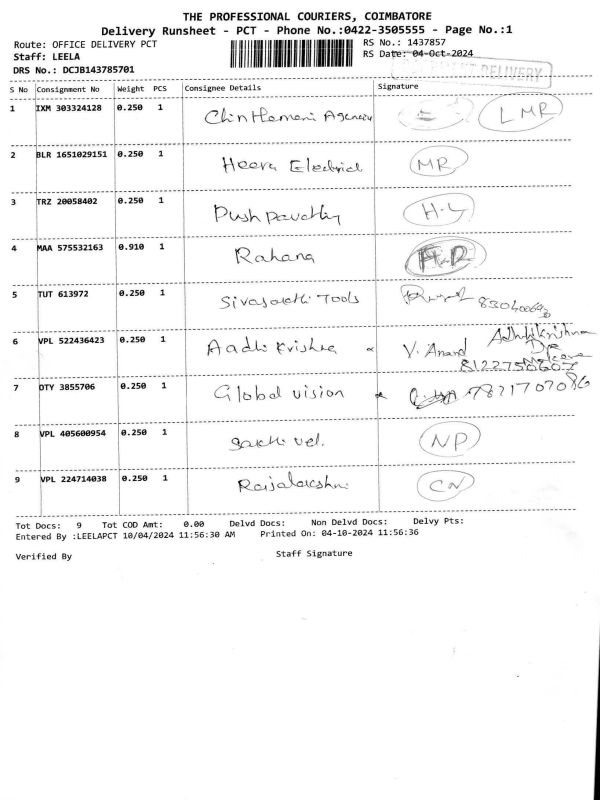 THE PROFESSIONAL COURIERS, COIMBATORE
Delivery Runsheet - PCT - Phone No.:0422-3505555 - Page No.:1
Route: OFFICE DELIVERY PCT
RS No.: 1437857
Staff: LEELA
RS Date: 04-Oct-2024
DRS No.: DCJB143785701
DELIVERY
S No Consignment No Weight PCS Consignee Details Signature
1 IXM 303324128 0.250 1 LMR
2 BLR 1651029151 0.250 1 Heera Electrical MR
3 TRZ 20058402 0.250 1 H.L
4 MAA 575532163 0.910 1 Rahana
5 TUT 613972 0.250 1 Sivasakthi Tools
6 VPL 522436423 0.250 1 Aadhi Krishna V. Anand
8122750607
7 DTY 3855706 0.250 1 Global vision
8 VPL 405600954 0.250 1 Sakthi vel. NP
9 VPL 224714038 0.250 1 CN
Tot Docs: 9 Tot COD Amt: 0.00 Delvd Docs: Non Delvd Docs: Delvy Pts:
Entered By :LEELAPCT 10/04/2024 11:56:30 AM Printed On: 04-10-2024 11:56:36
Verified By Staff Signature